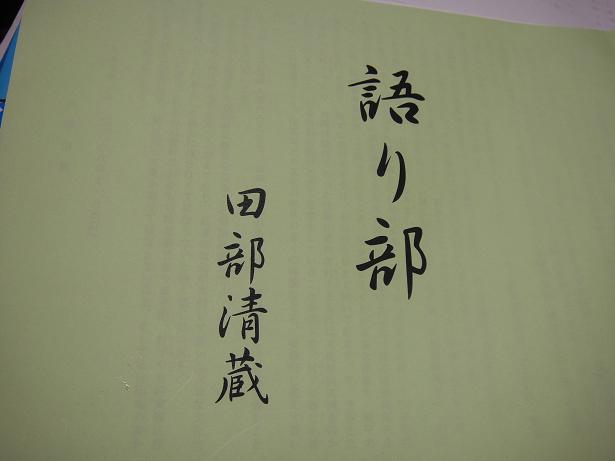 語り部
田部清蔵